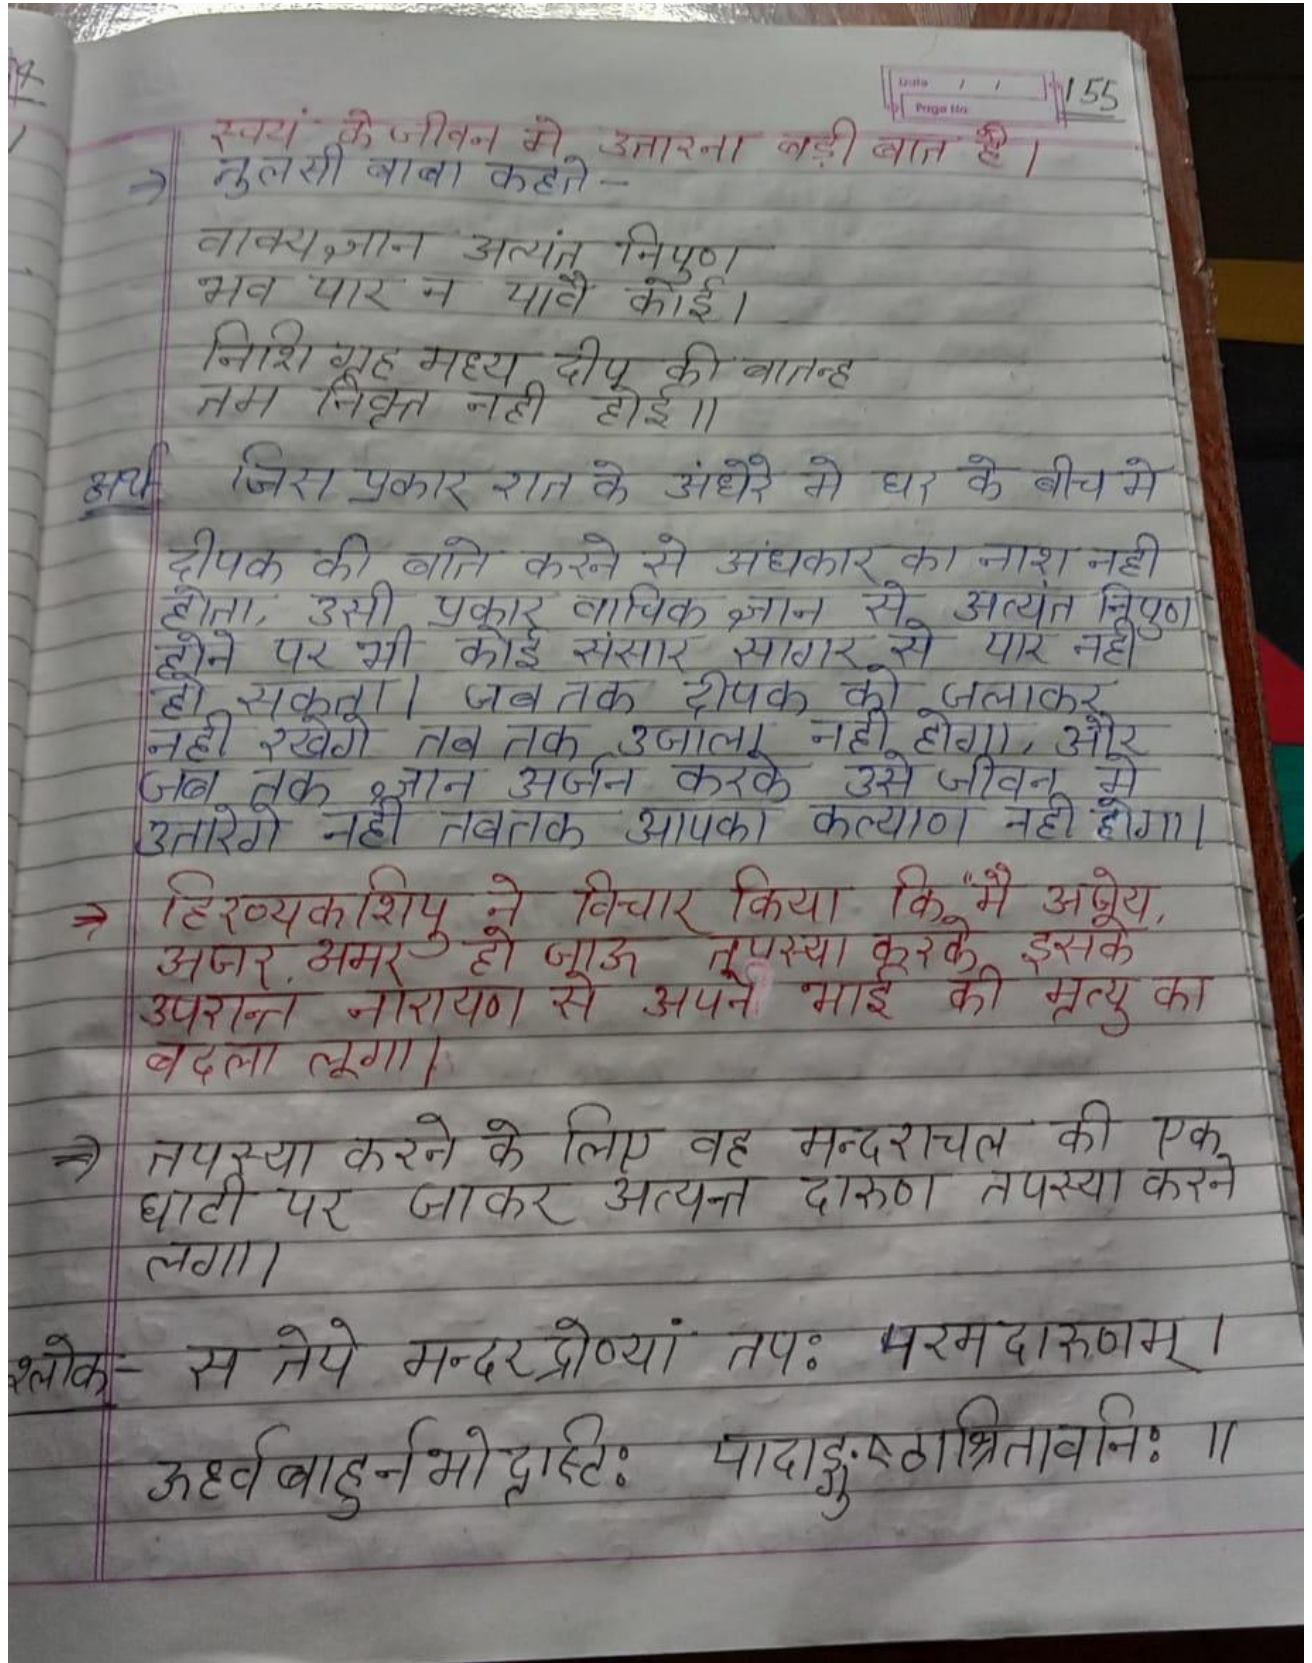 Date / /
Page No.
155
स्वयं के जीवन मे उतारना बड़ी बात है।
→ तुलसी बाबा कहते -
वाक्य ज्ञान अत्यंत निपुण
भव पार न पावै कोई।
निशि गृह मध्य दीप की बातन्ह
तम निवृत्त नही होई॥
अर्थ जिस प्रकार रात के अंधेरे मे घर के बीच मे
दीपक की बाते करने से अंधकार का नाश नही
होता, उसी प्रकार वाचिक ज्ञान से अत्यंत निपुण
होने पर भी कोई संसार सागर से पार नही
हो सकता। जब तक दीपक को जलाकर
नही रखेगे तब तक उजाला नही होगा, और
जब तक ज्ञान अर्जन करके उसे जीवन मे
उतारेगे नही तबतक आपका कल्याण नही होगा।
⇒ हिरण्यकशिपु ने विचार किया कि "मै अजेय,
अजर, अमर हो जाऊ तपस्या करके इसके
उपरान्त नारायण से अपने भाई की मृत्यु का
बदला लूगा।
⇒ तपस्या करने के लिए वह मन्दराचल की एक
घाटी पर जाकर अत्यन्त दारुण तपस्या करने
लगा।
श्लोक:- स तेपे मन्दरद्रोण्यां तपः परमदारुणम्।
ऊर्ध्वबाहुर्नभोदृष्टिः पादाङ्गुष्ठाश्रितावनिः॥